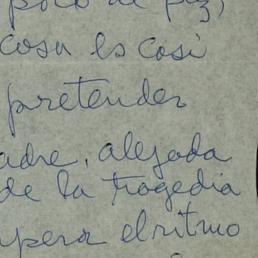 poco de paz,
cosa es así
pretender
adre, alejada
de la tragedia
upera el ritmo